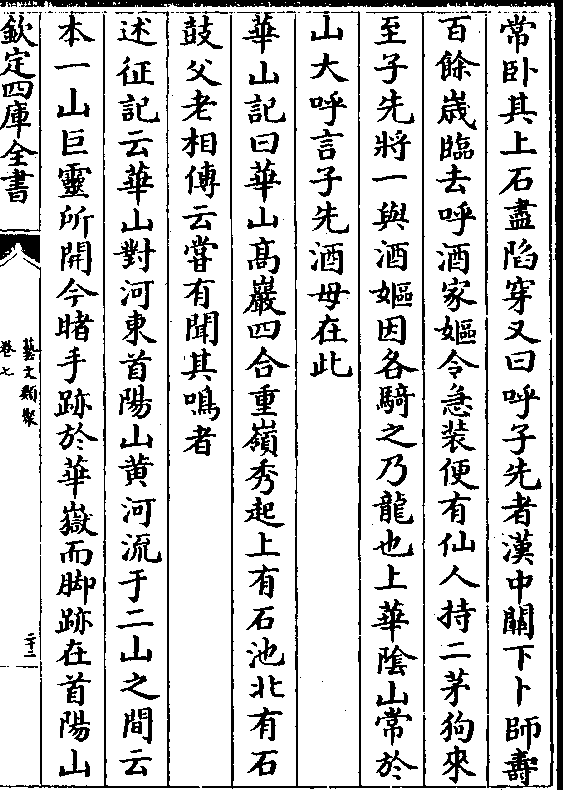 常卧其上石盡陷穿又曰呼子先者漢中關下卜師壽
百餘嵗臨去呼酒家嫗令急装便有仙人持二茅狗來
至子先將一與酒嫗因各騎之乃龍也上華隂山常於
山大呼言子先酒母在此
華山記曰華山髙巖四合重嶺秀起上有石池北有石
鼓父老相傳云甞有聞其鳴者
述征記云華山對河東首陽山黄河流于二山之間云
本一山巨靈所開今睹手跡於華嶽而脚跡在首陽山
欽定四庫全書
藝文類聚
卷七
二十二